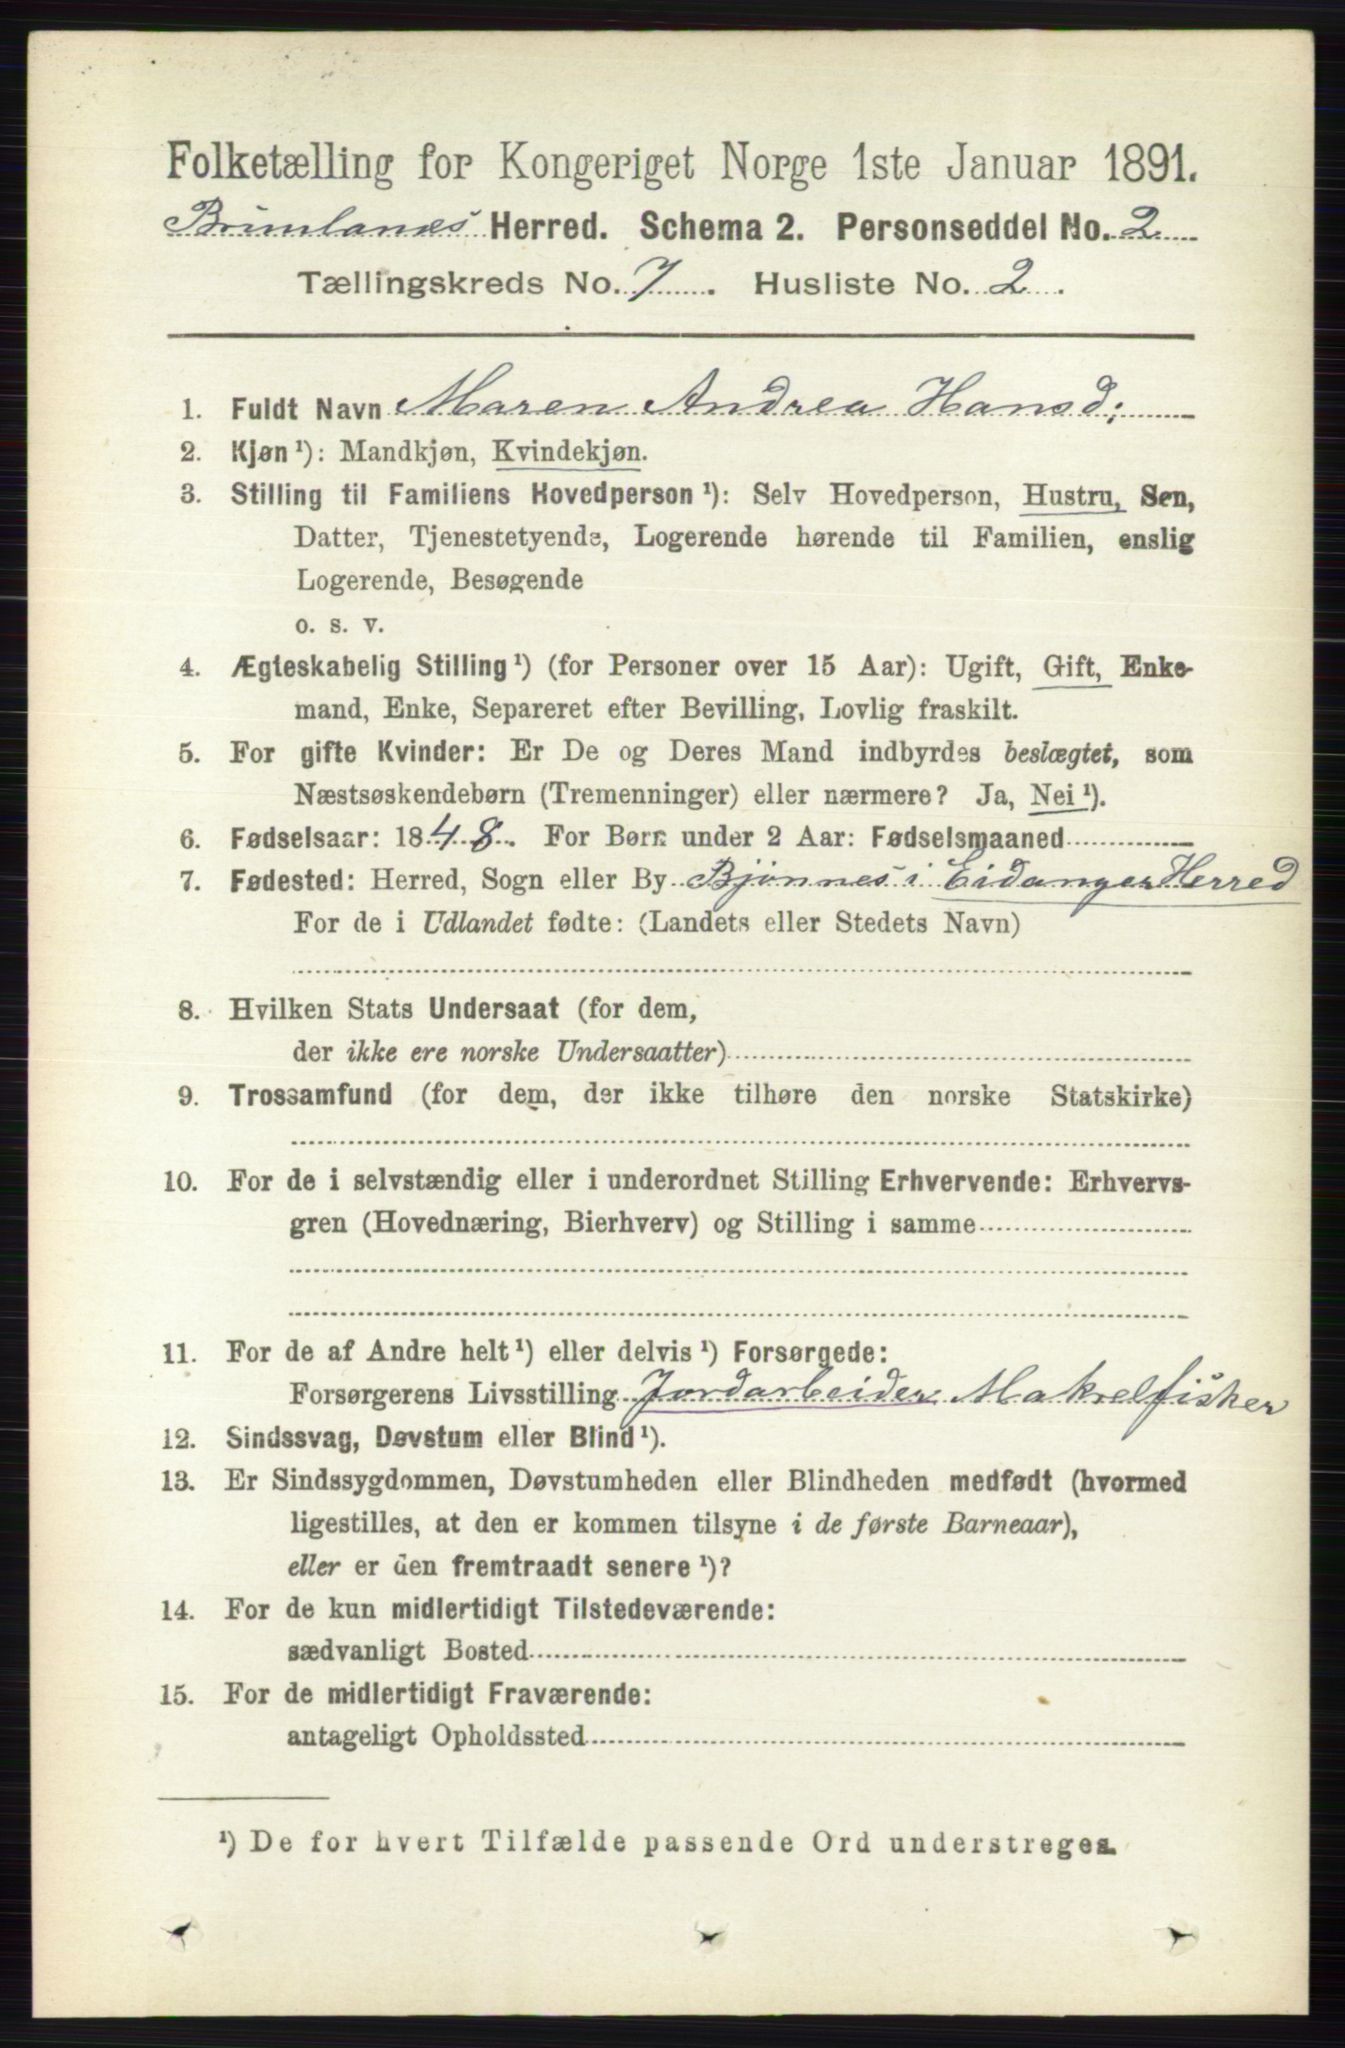 Folketælling for Kongeriget Norge 1ste Januar 1891.
Brunlanæs Herred. Schema 2. Personseddel No. 2
Tællingskreds No. 7. Husliste No. 2.
1. Fuldt Navn Maren Andrea Hansd:
2. Kjøn ¹): Mandkjøn, Kvindekjøn.
3. Stilling til Familiens Hovedperson ¹): Selv Hovedperson, Hustru, Søn,
Datter, Tjenestetyende, Logerende hørende til Familien, enslig
Logerende, Besøgende
o. s. v.
4. Ægteskabelig Stilling ¹) (for Personer over 15 Aar): Ugift, Gift, Enke-
mand, Enke, Separeret efter Bevilling, Lovlig fraskilt.
5. For gifte Kvinder: Er De og Deres Mand indbyrdes beslægtet, som
Næstsøskendebørn (Tremenninger) eller nærmere? Ja, Nei ¹).
6. Fødselsaar: 1848. For Børn under 2 Aar: Fødselsmaaned
7. Fødested: Herred, Sogn eller By Bjønnes i Eidanger Herred
For de i Udlandet fødte: (Landets eller Stedets Navn)
8. Hvilken Stats Undersaat (for dem,
der ikke ere norske Undersaatter)
9. Trossamfund (for dem, der ikke tilhøre den norske Statskirke)
10. For de i selvstændig eller i underordnet Stilling Erhvervende: Erhvervs-
gren (Hovednæring, Bierhverv) og Stilling i samme
11. For de af Andre helt ¹) eller delvis ¹) Forsørgede:
Forsørgerens Livsstilling Jordarbeider Makrelfisker
12. Sindssvag, Døvstum eller Blind ¹).
13. Er Sindssygdommen, Døvstumheden eller Blindheden medfødt (hvormed
ligestilles, at den er kommen tilsyne i de første Barneaar),
eller er den fremtraadt senere ¹)?
14. For de kun midlertidigt Tilstedeværende:
sædvanligt Bosted
15. For de midlertidigt Fraværende:
antageligt Opholdssted
¹) De for hvert Tilfælde passende Ord understreges.